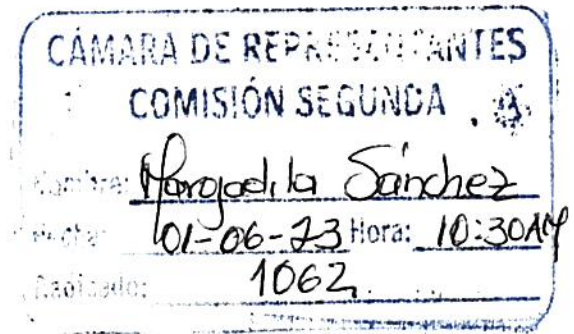 CÁMARA DE REPRESENTANTES
COMISIÓN SEGUNDA
Nombre: Sánchez
Fecha: 01-06-23 Hora: 10:30AM
Radicado: 1062